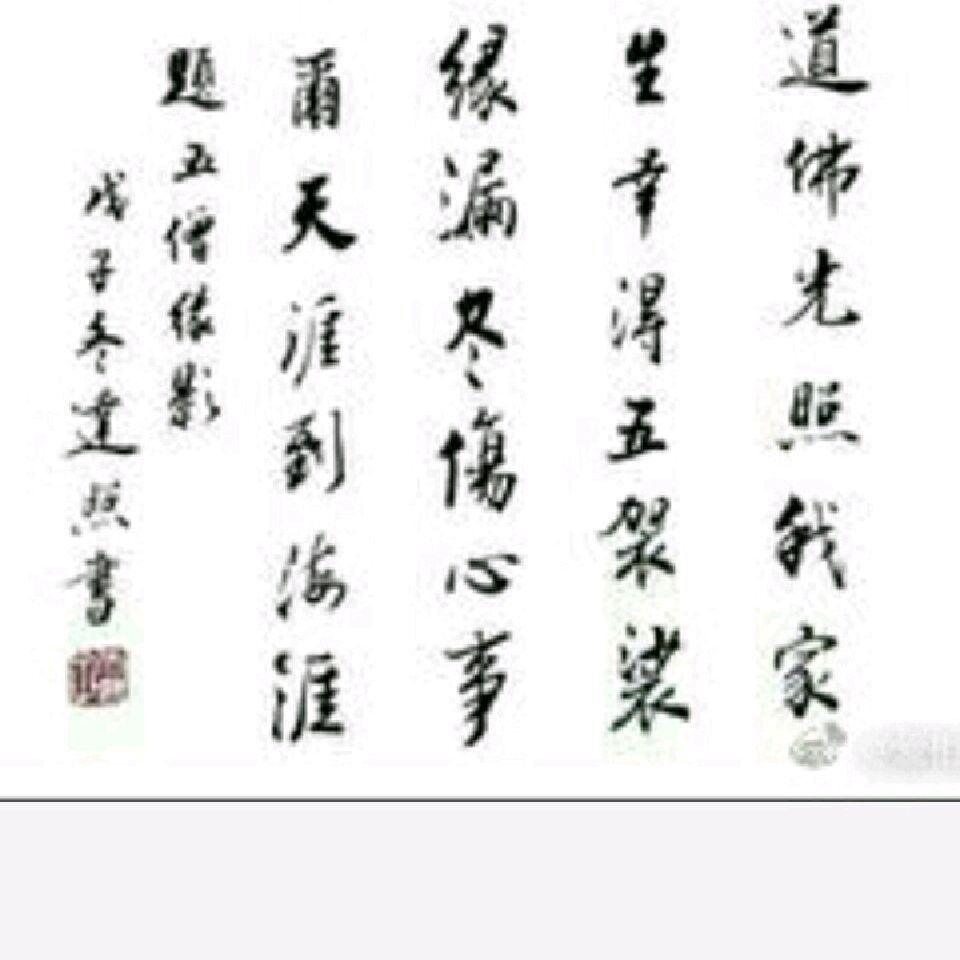 道佛光照我家
生幸得五袈裟
緣漏尽傷心事
爾天涯到海涯
題五僧緣影
戊子冬達照書